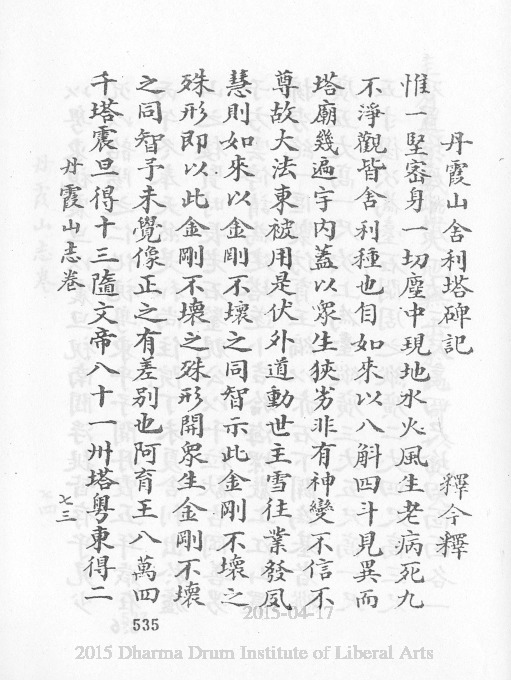 丹霞山舍利塔碑記　釋今釋
惟一堅密身一切塵中現地水火風生老病死九
不淨觀皆舍利種也自如來以八斛四斗見異而
塔廟幾遍宇內蓋以眾生狹劣非有神變不信不
尊故大法東被用是伏外道動世主雪往業發夙
慧則如來以金剛不壞之同智示此金剛不壞之
殊形即以此金剛不壞之殊形開眾生金剛不壞
之同智予未覺像正之有差別也阿育王八萬四
千塔震旦得十三隨文帝八十一州塔粵東得二
丹霞山志卷　七三
535
2015-04-17
2015 Dharma Drum Institute of Liberal Arts